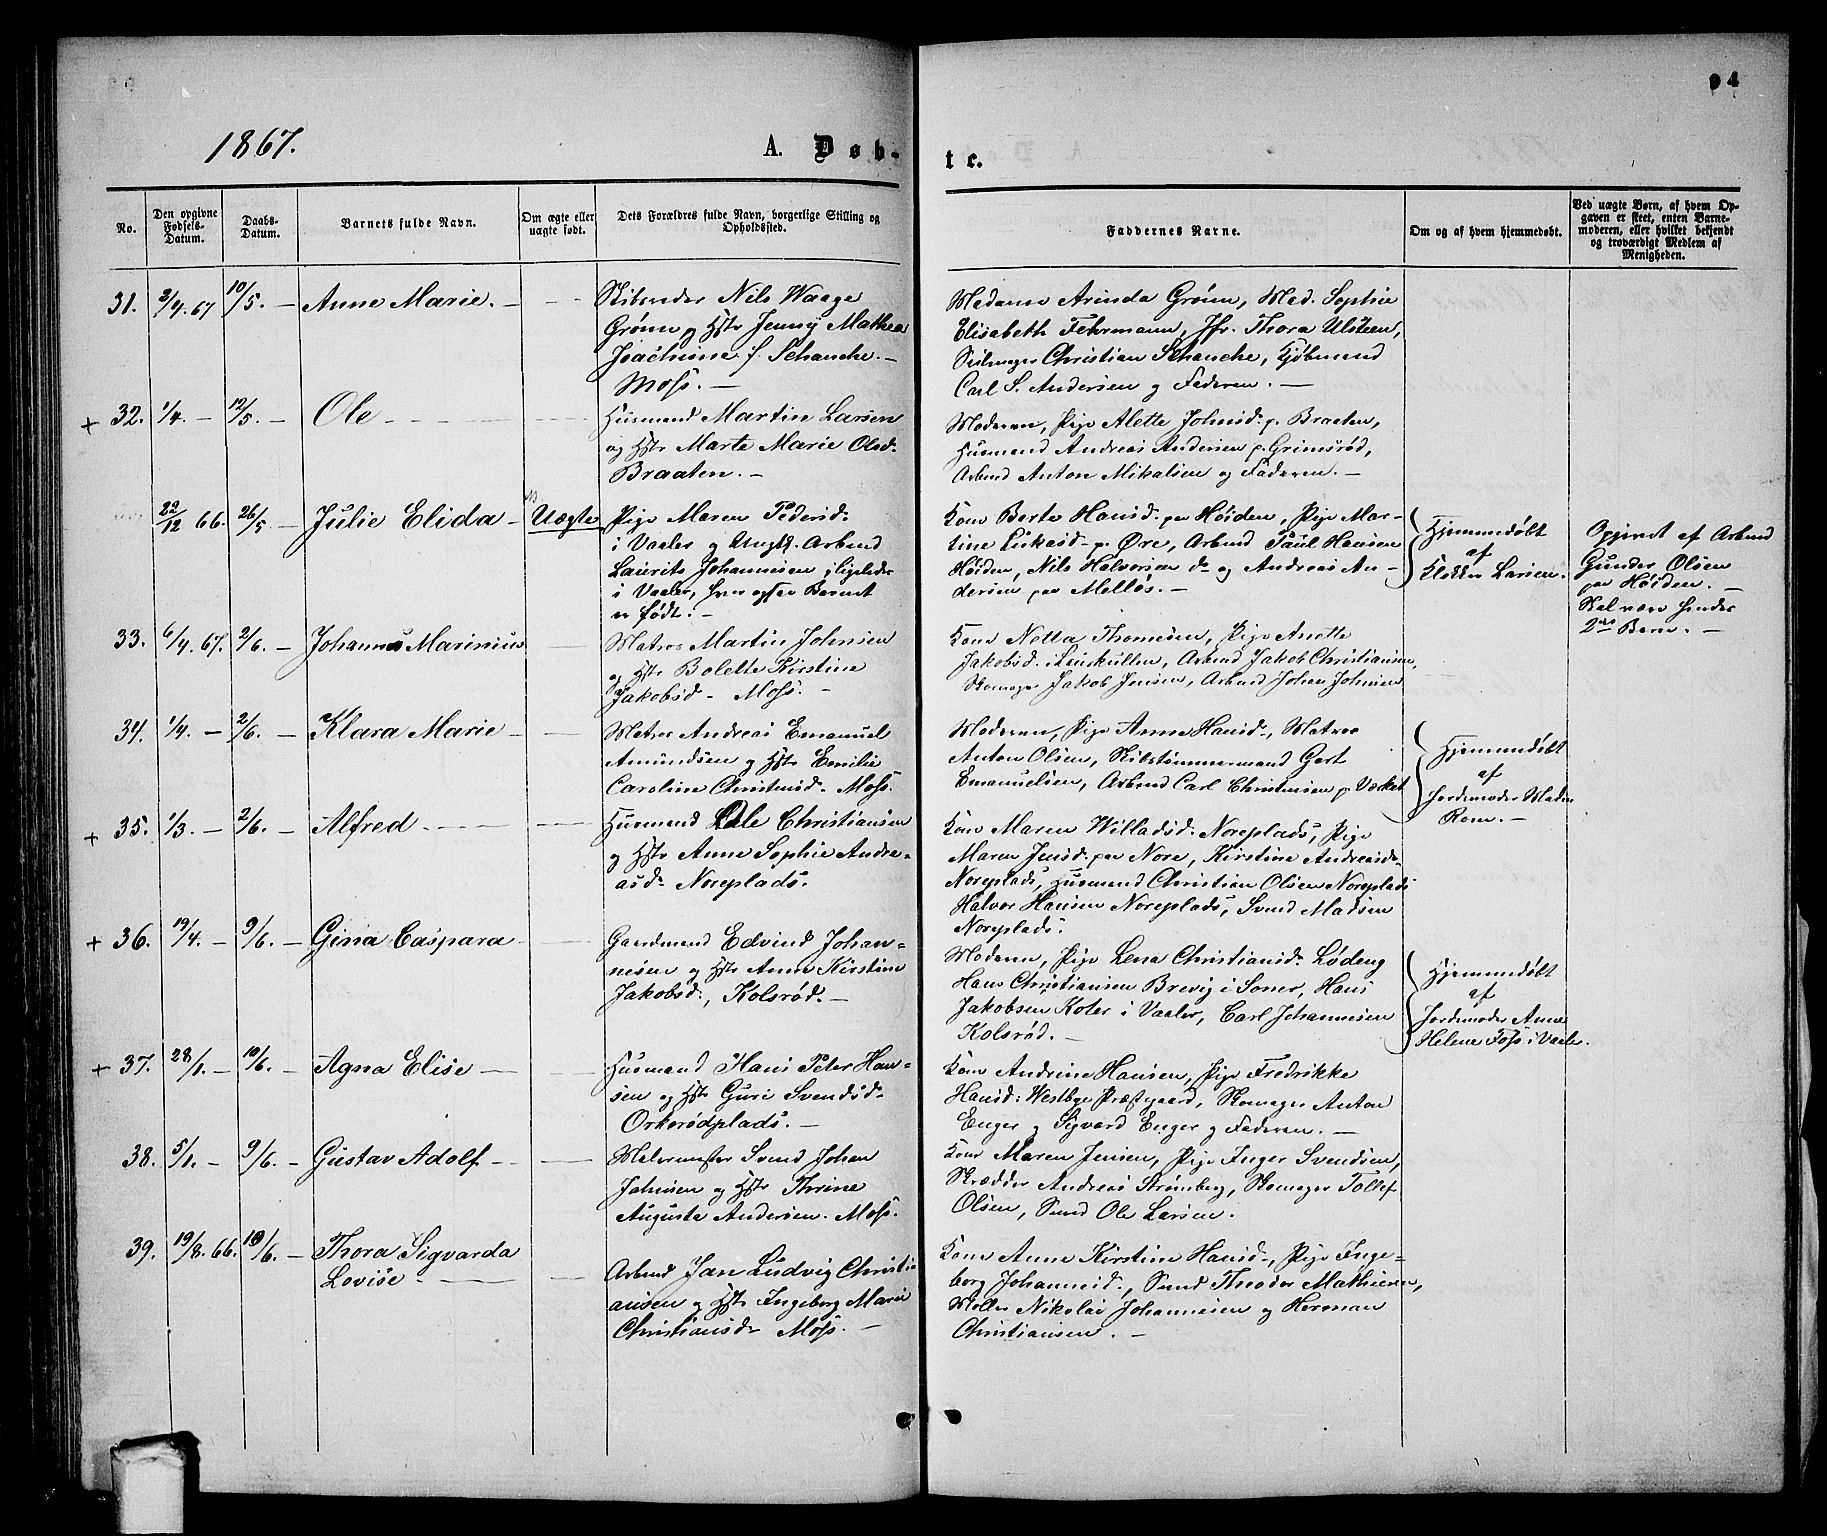 94
1867.
A. Døb-
te.
No.
Den opgivne Fødsels-Datum.
Daabs-Datum.
Barnets fulde Navn.
Om ægte eller uægte født.
Dets Forældres fulde Navn, borgerlige Stilling og Opholdssted.
Faddernes Navne.
Om og af hvem hjemmedøbt.
Ved uægte Børn, af hvem Opgaven er skeet, enten Barnemoderen, eller hvilket bekjendt og troværdigt Medlem af Menigheden.
31. 2/4. 67 10/5. – Anne Marie. –
Skibsreder Nils Waage
Grønn og Hstr Jenny Mathea
Joachime f. Schanche. –
Moss. –
Madame Arinda Grønn, Mad. Sophie
Elisabeth Fehrmann, Jfr. Thora Ulsteen,
Seilmager Christian Schanche, Kjøbmand
Carl S. Andersen og Faderen. –
+ 32. 1/4. – 12/5. – Ole
Husmand Martin Larsen
og Hstr Marte Marie Olsd.
Braaten. –
Moderen, Pige Alette Johnsd. p. Braaten,
Husmand Andreas Andersen p. Grimsrød,
Arbmd Anton Mikalsen og Faderen. –
22/12 66. 26/5. – Julie Elida – Uægte
Pige Maren Pedersd.
i Vaaler og Ungk. Arbmd
Laurits Johannesen, ligeledes
i Vaaler, hvor ogsaa Barnet
er født. –
Kone Berte Hansd. paa Høiden, Pige Mar-
tine Lukasd. p. Øre, Arbmd Paul Hansen
Høiden, Nils Halvorsen do og Andreas An-
dersen paa Melløs. –
Hjemmedøbt
af
Klokker Larsen.
Opgivet af Arbmd
Gunder Olsen
paa Høiden. –
Skal være hendes
2det Barn. –
33. 6/4. 67. 2/6. – Johannes Marinius
Matros Martin Johnsen
og Hstr Bolette Kirstine
Jakobsd. Moss. –
Kone Netta Thomesen, Pige Anette
Jakobsd. i Leirskullen, Arbmd Jakob Christiansen,
Skomager Jakob Jensen, Arbmd Johan Johnsen
34. 1/4. – 2/6. – Klara Marie –
Matros Andreas Emanuel
Amundsen og Hstr Emilie
Caroline Christensd. Moss.
Moderen, Pige Anne Hansd., Matros
Anton Olsen, Skibstømmermand Gert
Emanuelsen, Arbmd Carl Christensen p. Værket
Hjemmedøbt
af
Jordemoder Madm
Rom. –
+ 35. 1/3. – 2/6. – Alfred
Husmand Ole Christiansen
og Hstr Anne Sophie Andre-
asd. Noreplads.
Kone Maren Willadsd. Noreplads, Pige
Maren Jensd. paa Nore, Kirstine Andreasd.
Noreplads, Husmand Christian Olsen Noreplads
Halvor Hansen Noreplads, Svend Madsen
Noreplads.
+ 36. 19/4. – 9/6. – Gina Caspara
Gaardmand Edvind Johan-
nesen og Hstr Anne Kirstine
Jakobsd., Kolsrød. –
Moderen, Pige Lena Christiansd. Lødeng
Hans Christiansen Brevig i Soner, Hans
Jakobsen Koter i Vaaler, Carl Johannesen
Kolsrød. –
Hjemmedøbt
af
Jordemoder Anne
Helene Foss i Vaaler.
+ 37. 28/1. – 10/6. – Agna Elise –
Husmand Hans Peter Han-
sen og Hstr Guri Svendsd.
Orkerødplads. –
Kone Andrine Hansen, Pige Fredrikke
Hansd: Westbye Præstgaard, Skomager Anton
Enger og Sigvard Enger og Faderen. –
38. 5/1. – 9/6. – Gustav Adolf –
Malermester Svend Johan
Johnsen og Hstr Thrine
Augusta Andersen. Moss.
Kone Maren Jensen, Pige Inger Svendsen,
Skrædder Andreas Strømberg, Skomager Tollef
Olsen, Smed Ole Larsen.
39. 19/8. 66. 10/6. – Thora Sigvarda
Lovise –
Arbmd Jan Ludvig Christi-
ansen og Hstr Ingeborg Marie
Christiansd. Moss. –
Kone Anne Kirstine Hansd., Pige Inge-
borg Johannesd., Smed Theodor Mathiesen,
Møller Nikolai Johannesen og Herman
Christiansen. –